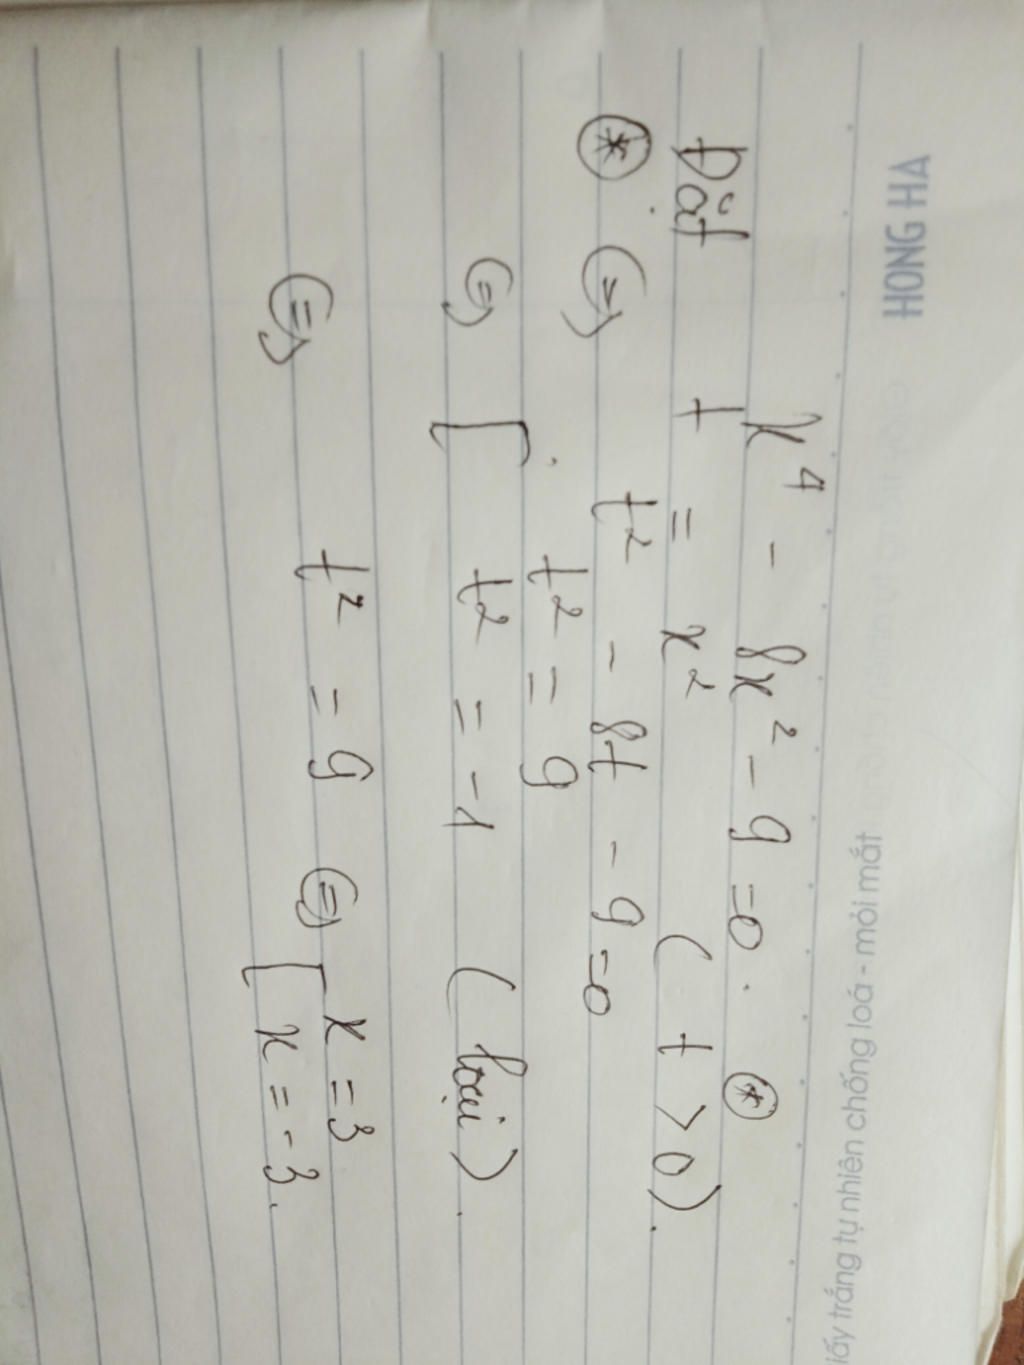 HONG HA
lấy trắng tự nhiên chống loá - mỏi mắt
x⁴ - 8x² - 9 = 0. (*)
Đặt t = x² (t > 0).
(*) <=> t² - 8t - 9 = 0
<=> [ t² = 9
t² = -1 (loại).
<=> t² = 9 <=> [ x = 3
x = -3.